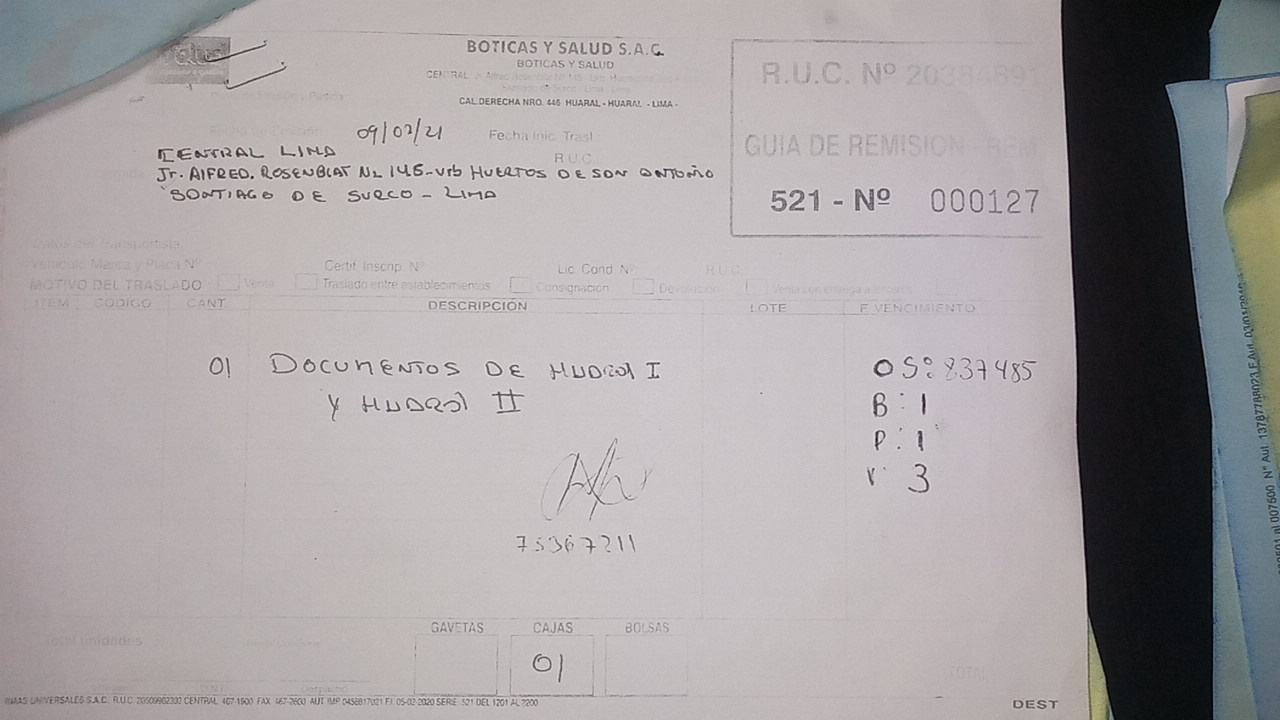 BOTICAS Y SALUD S.A.C.
BOTICAS Y SALUD
CAL.DERECHA NRO. 446 HUARAL - HUARAL - LIMA -
R.U.C. Nº
GUIA DE REMISION - REM
521 - Nº 000127
09/02/21 Fecha Inic. Trasl
R.U.C
CENTRAL LIMA
Jr. ALFRED. ROSENBLAT Nº 145-urb HUERTOS DE SAN ANTOÑO
SANTIAGO DE SURCO - LIMA
Datos del Transportista
Vehículo Marca y Placa Nº Certif. Inscrip. Nº Lic. Cond. Nº R.U.C.
MOTIVO DEL TRASLADO Venta Traslado entre establecimientos Consignación Devolución
ITEM CODIGO CANT. DESCRIPCIÓN LOTE F. VENCIMIENTO
01 DOCUMENTOS DE HUARAL I OS: 837485
Y HUARAL II B: 1
P: 1
V: 3
75367211
Total unidades GAVETAS CAJAS BOLSAS
01
TOTAL
UNIVERSALES S.A.C. CENTRAL 467-1900 FAX 467-2600 05-02-2020 SERIE 521 DEL 1201 AL 2200
DEST